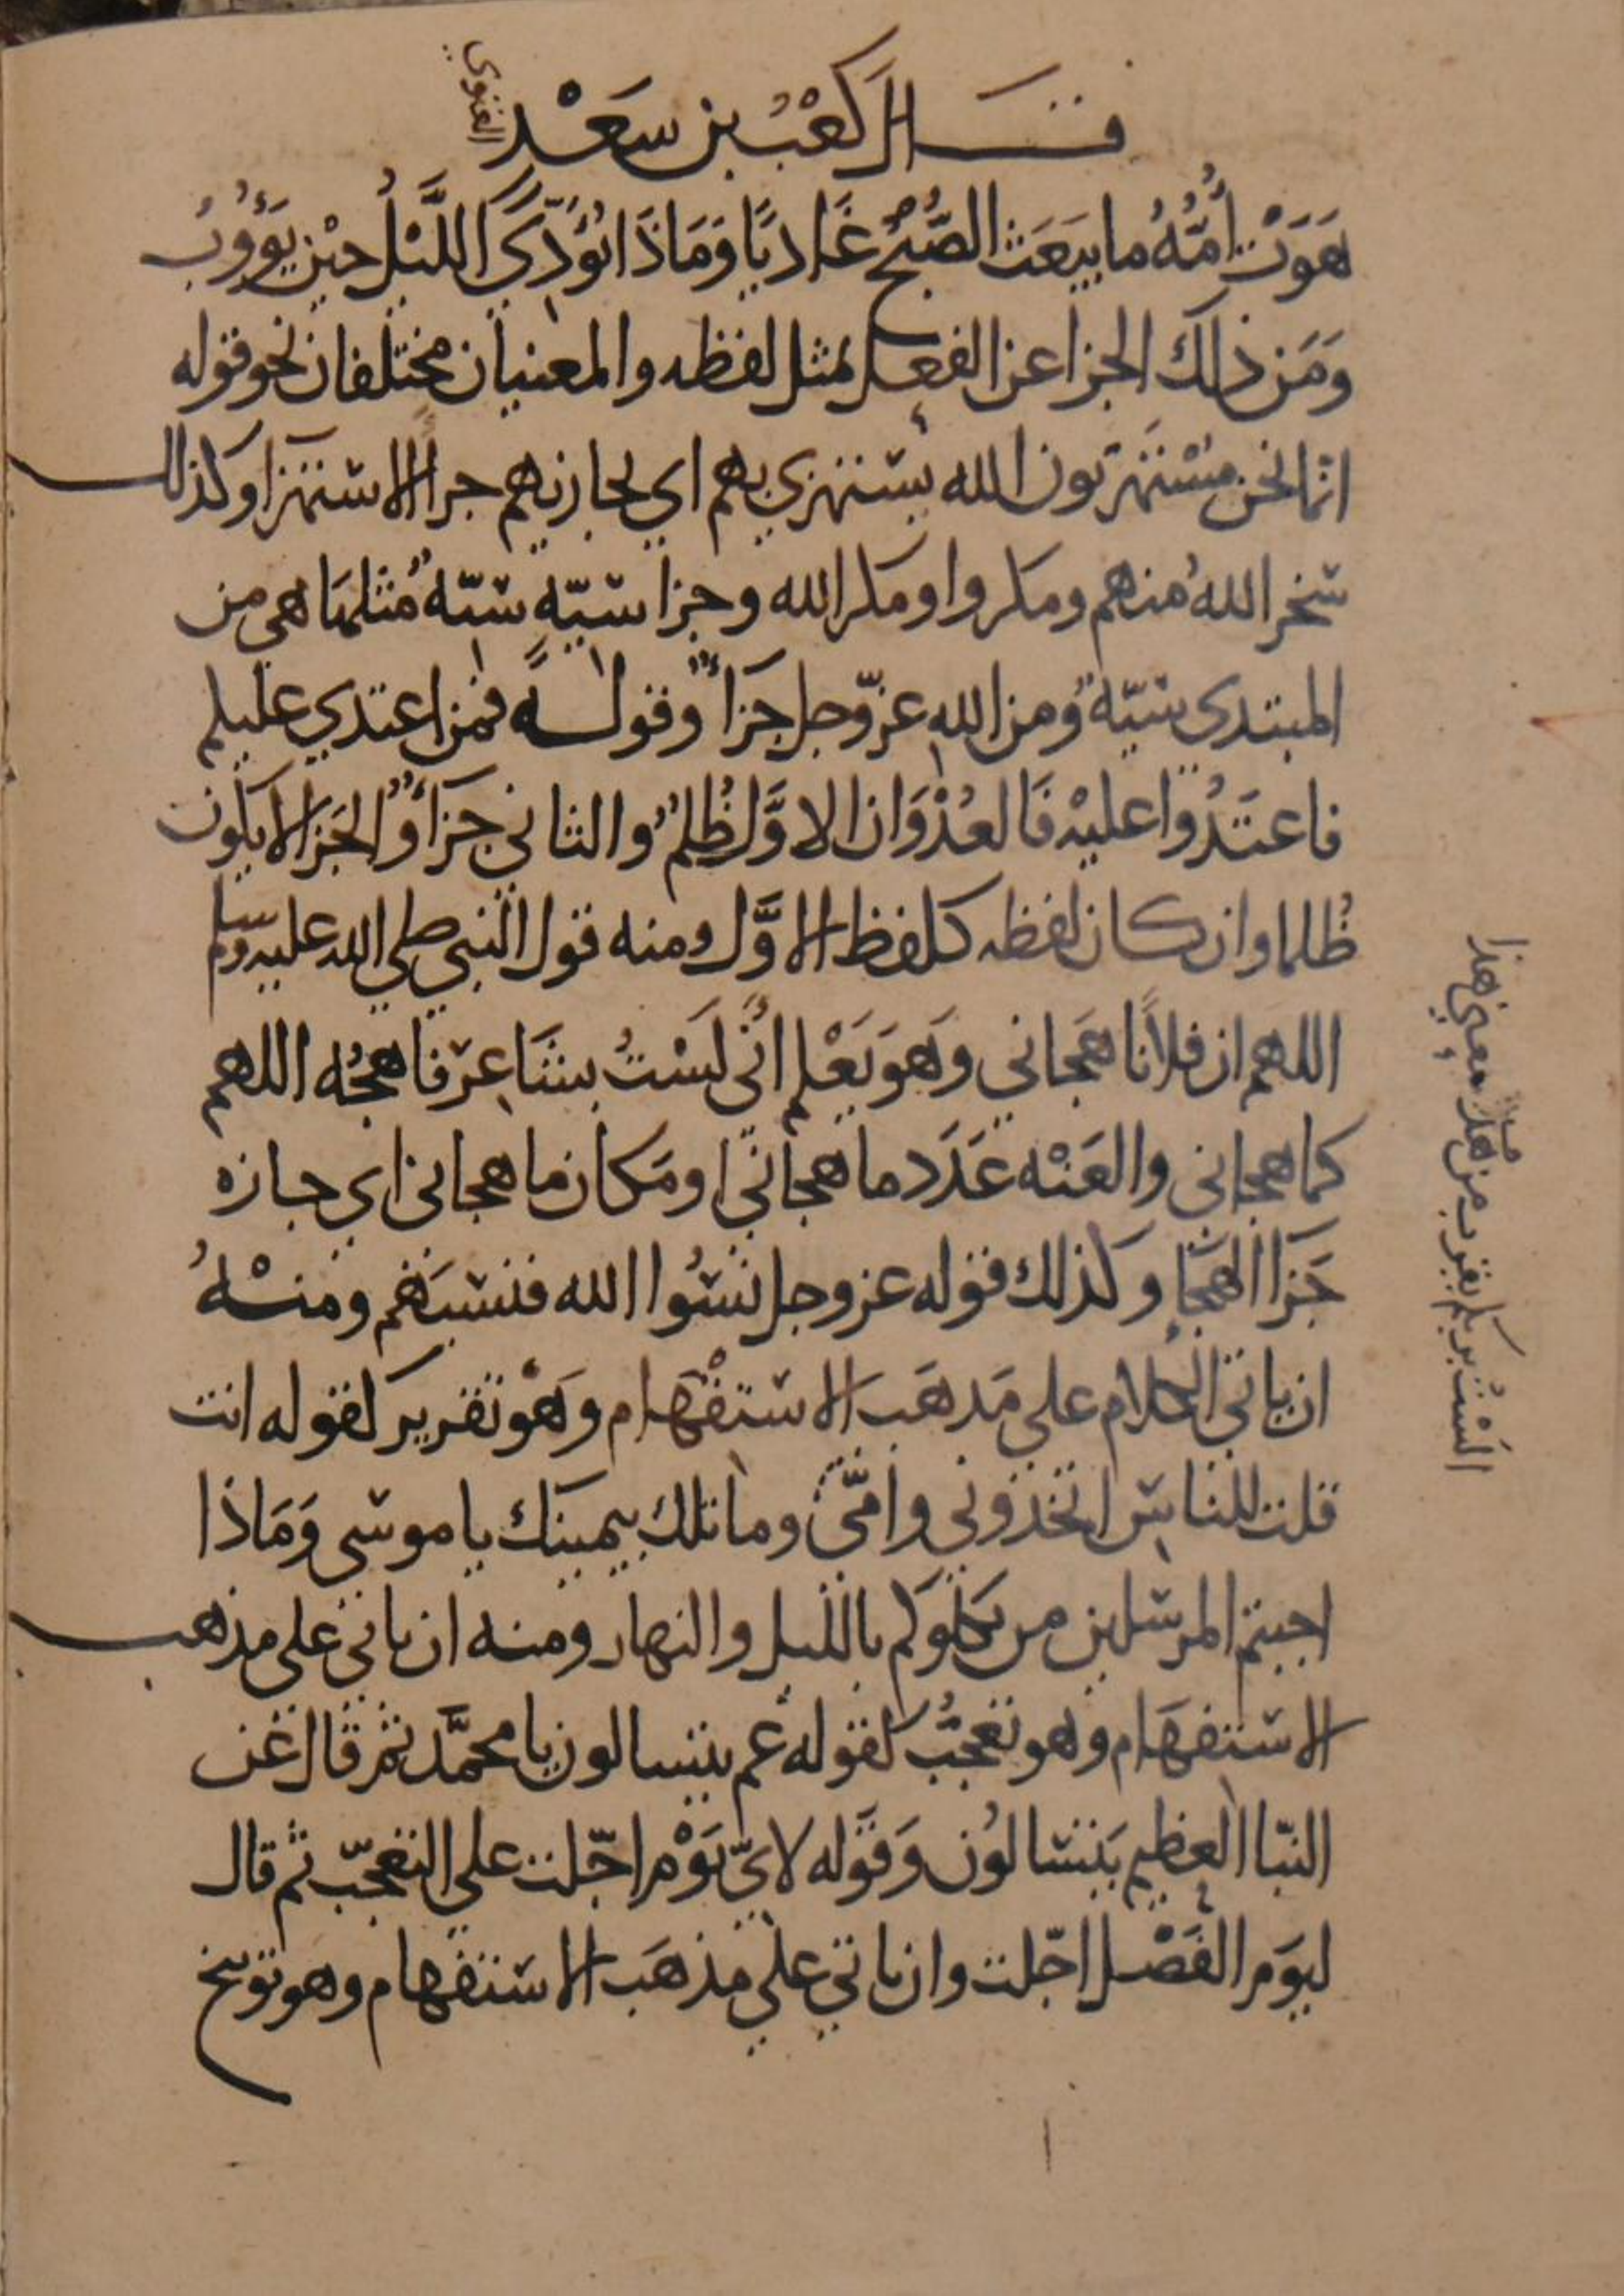 قال كعب بن سعد الغنوي
هَوَتْ أُمُّهُ ما يبَعَث الصُّبْحُ غَاديًا وَمَاذَا يُؤدِّي اللَّيْلُ حيْن يَؤُوبُ
وَمَن ذلك الجزا عن الفعل بمثل لفظه والمعنيان مختلفان نحو قوله
انما نحن مسْتهزئون الله يستهزي بهم اي يجازيهم جزا الاستهزا وكذلك
سخر اللهُ منهم ومكروا ومكر الله وجزا سيّة سيّة مثلها هي من
المبتدي سيّة ومن الله عزّ وجل جَزَاءٌ وقوله فمن اعتدي عليكم
فاعتَدُوا عليْه فَالعُدْوَان الاوَّل ظُلمٌ والثاني جَزَاءٌ والجَزا لا يكون
ظُلما وان كان لفظه كلفظ الاوَّل ومنه قول النبي صلي الله عليه وسلم
اللهم ان فلانًا هَجاني وَهوَ يَعْلم أنّي لَسْتُ بشَاعِر فاهجُه اللهم
كما هجاني والعَنْه عَدَد ما هجانّي او مَكان ما هجاني اي جازه
جَزَا الهجَا وكذلك قوله عز وجل نسُوا الله فنسيَهم ومنْهُ
ان ياتي الكلام علي مَذهَب الاستفْهَام وَهْو تقرير كقوله انت
قلت للناس اتخذوني وامّي وما تلك بيمينك يا موسي وَمَاذا
اجبتم المرسلين من يكلوكم بالليل والنهار ومنه ان ياتي علي مذهب
الاستفهَام وهو تعجّبٌ كقوله عم يتسالون يا محمَّد ثم قال عَن
النبَا العظيم يَتسالُون وَقوَله لايّ يَوْم اجّلت علي التعجّب ثم قال
ليوَم الفَصْل اجّلت وان ياتي علي مذهَب الاستفهام وهو توبيخ
الَسْتُ بربكم يقرب من هذا معني هذا